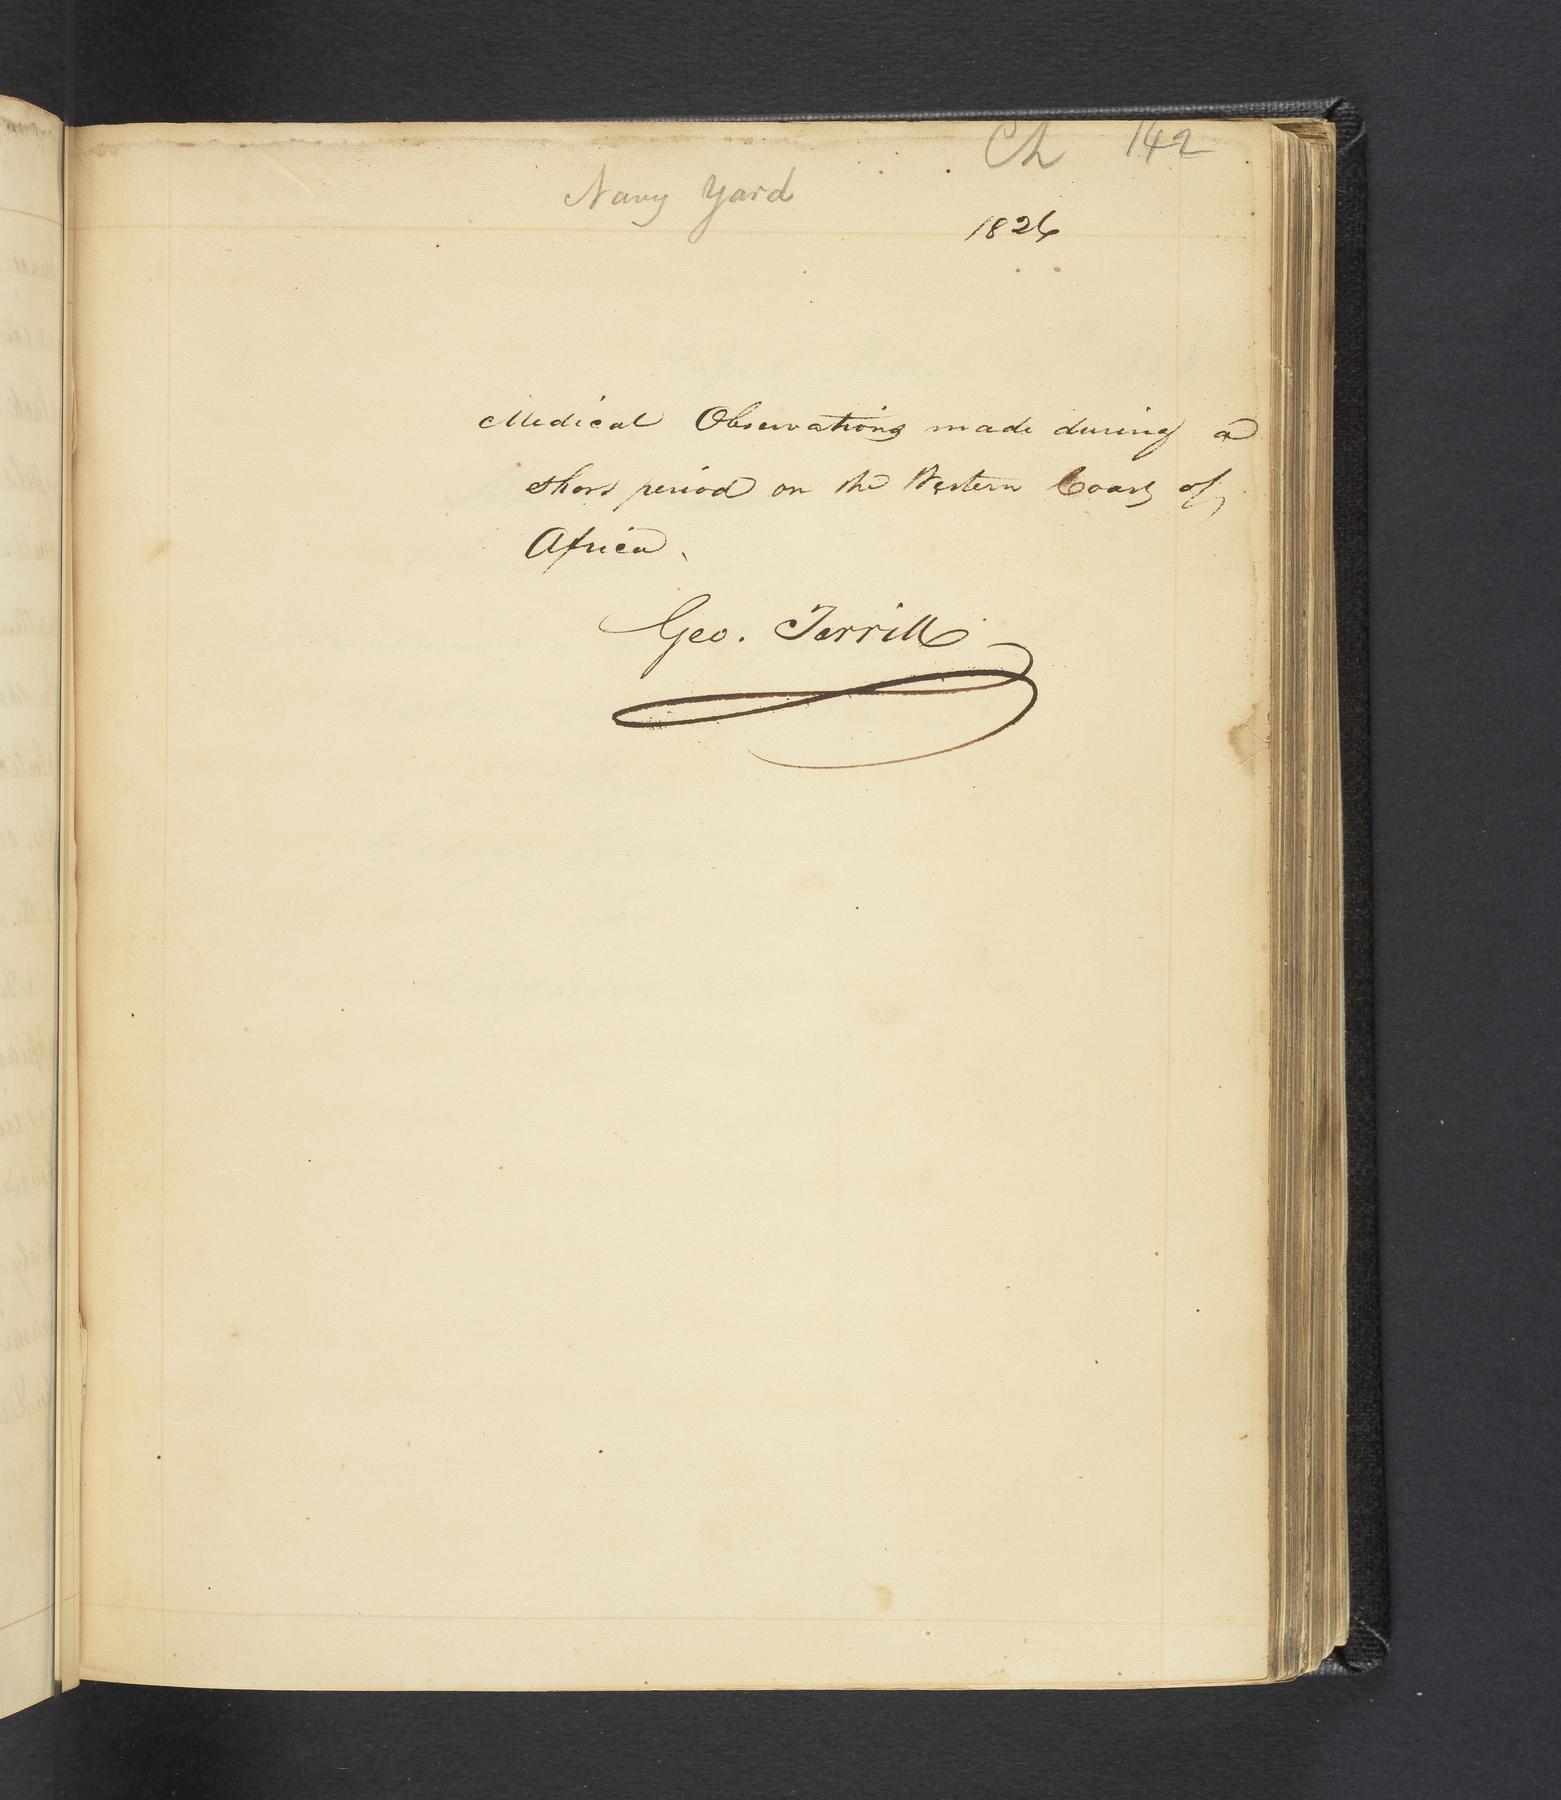 Ch 142
Navy Yard
1826
Medical Observations made during a
short period on the Western Coast of
Africa.
Geo. Terrill